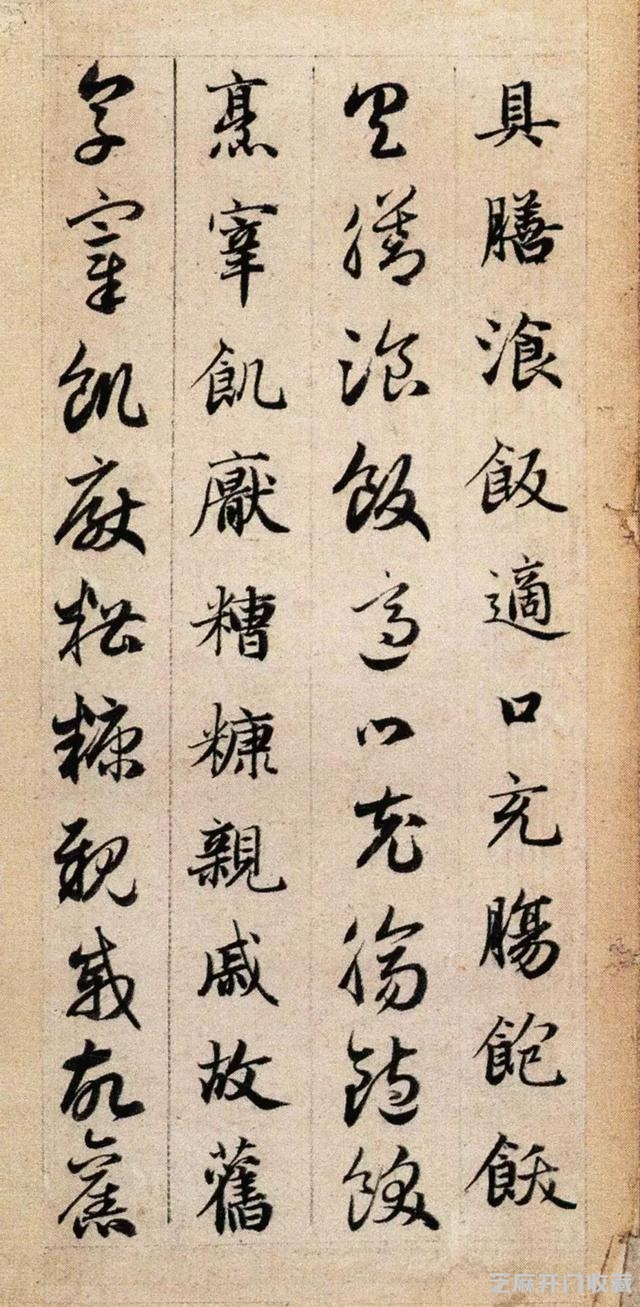 具膳湌飯適口充腸飽飫
具膳湌飯適口充腸飽飫
烹宰飢厭糟糠親戚故舊
烹宰飢厭糟糠親戚故舊
芝麻开门收藏